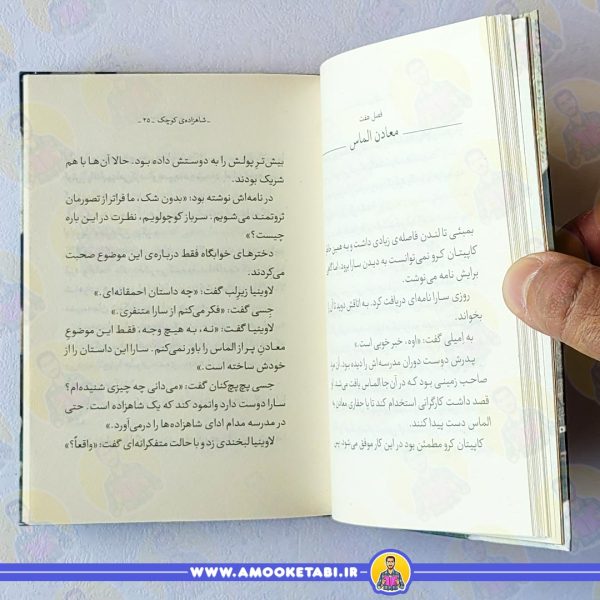 فصل هفت
معادن الماس
بمبئی تا لندن فاصله‌ی زیادی داشت و به همین
کاپیتان کرو نمی‌توانست به دیدن سارا برود، اما
برایش نامه می‌نوشت.
روزی سارا نامه‌ای دریافت کرد. به اتاقش دوید تا آن را
بخواند.
به اِمیلی گفت: «اوه، خبر خوبی است.»
پدرش دوست دوران مدرسه‌اش را دیده بود. آن
صاحب زمینی بود که در آن‌جا الماس یافت می‌شد.
قصد داشت کارگرانی استخدام کند تا با حفاری معادن به
الماس دست پیدا کنند.
کاپیتان کرو مطمئن بود در این کار موفق می‌شود، پس
ـ شاهزاده‌ی کوچک ـ ۲۵ ـ
بیش‌ترِ پولش را به دوستش داده بود، حالا آن‌ها با هم
شریک بودند.
در نامه‌اش نوشته بود: «بدون شک، ما فراتر از تصورمان
ثروتمند می‌شویم. سرباز کوچولویم، نظرت در این باره
چیست؟»
دخترهای خوابگاه فقط درباره‌ی این موضوع صحبت
می‌کردند.
لاوینیا زیرِلب گفت: «چه داستان احمقانه‌ای.»
جِسی گفت: «فکر می‌کنم از سارا متنفری.»
لاوینیا گفت: «نه، به هیچ وجه، فقط این موضوعِ
معادنِ پر از الماس را باور نمی‌کنم. سارا این داستان را از
خودش ساخته است.»
جسی پچ‌پچ‌کنان گفت: «می‌دانی چه چیزی شنیده‌ام؟
سارا دوست دارد وانمود کند که یک شاهزاده است. حتی
در مدرسه مدام ادای شاهزاده‌ها را درمی‌آورد.»
لاوینیا لبخندی زد و با حالت متفکرانه‌ای گفت: «واقعاً؟»
WWW.AMOOKETABI.IR